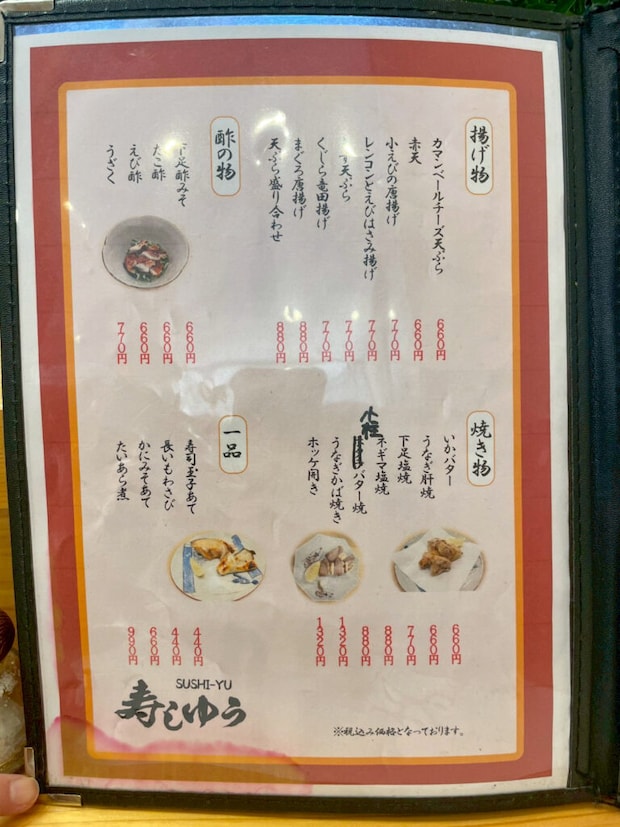 揚げ物
カマンベールチーズ天ぷら
赤天
小えびの唐揚げ
レンコンとえびはさみ揚げ
す天ぷら
くじら竜田揚げ
まぐろ唐揚げ
天ぷら盛り合わせ
660円
660円
770円
770円
770円
770円
880円
880円
酢の物
下足酢みそ
たこ酢
えび酢
うざく
660円
660円
660円
770円
焼き物
いかバター
うなぎ肝焼
下足塩焼
ネギマ塩焼
小柱バター焼
うなぎかば焼き
ホッケ開き
660円
660円
770円
880円
880円
1320円
1320円
一品
寿司玉子あて
長いもわさび
かにみそあて
たいあら煮
440円
440円
660円
990円
SUSHI-YU
寿しゆう
※税込み価格となっております。